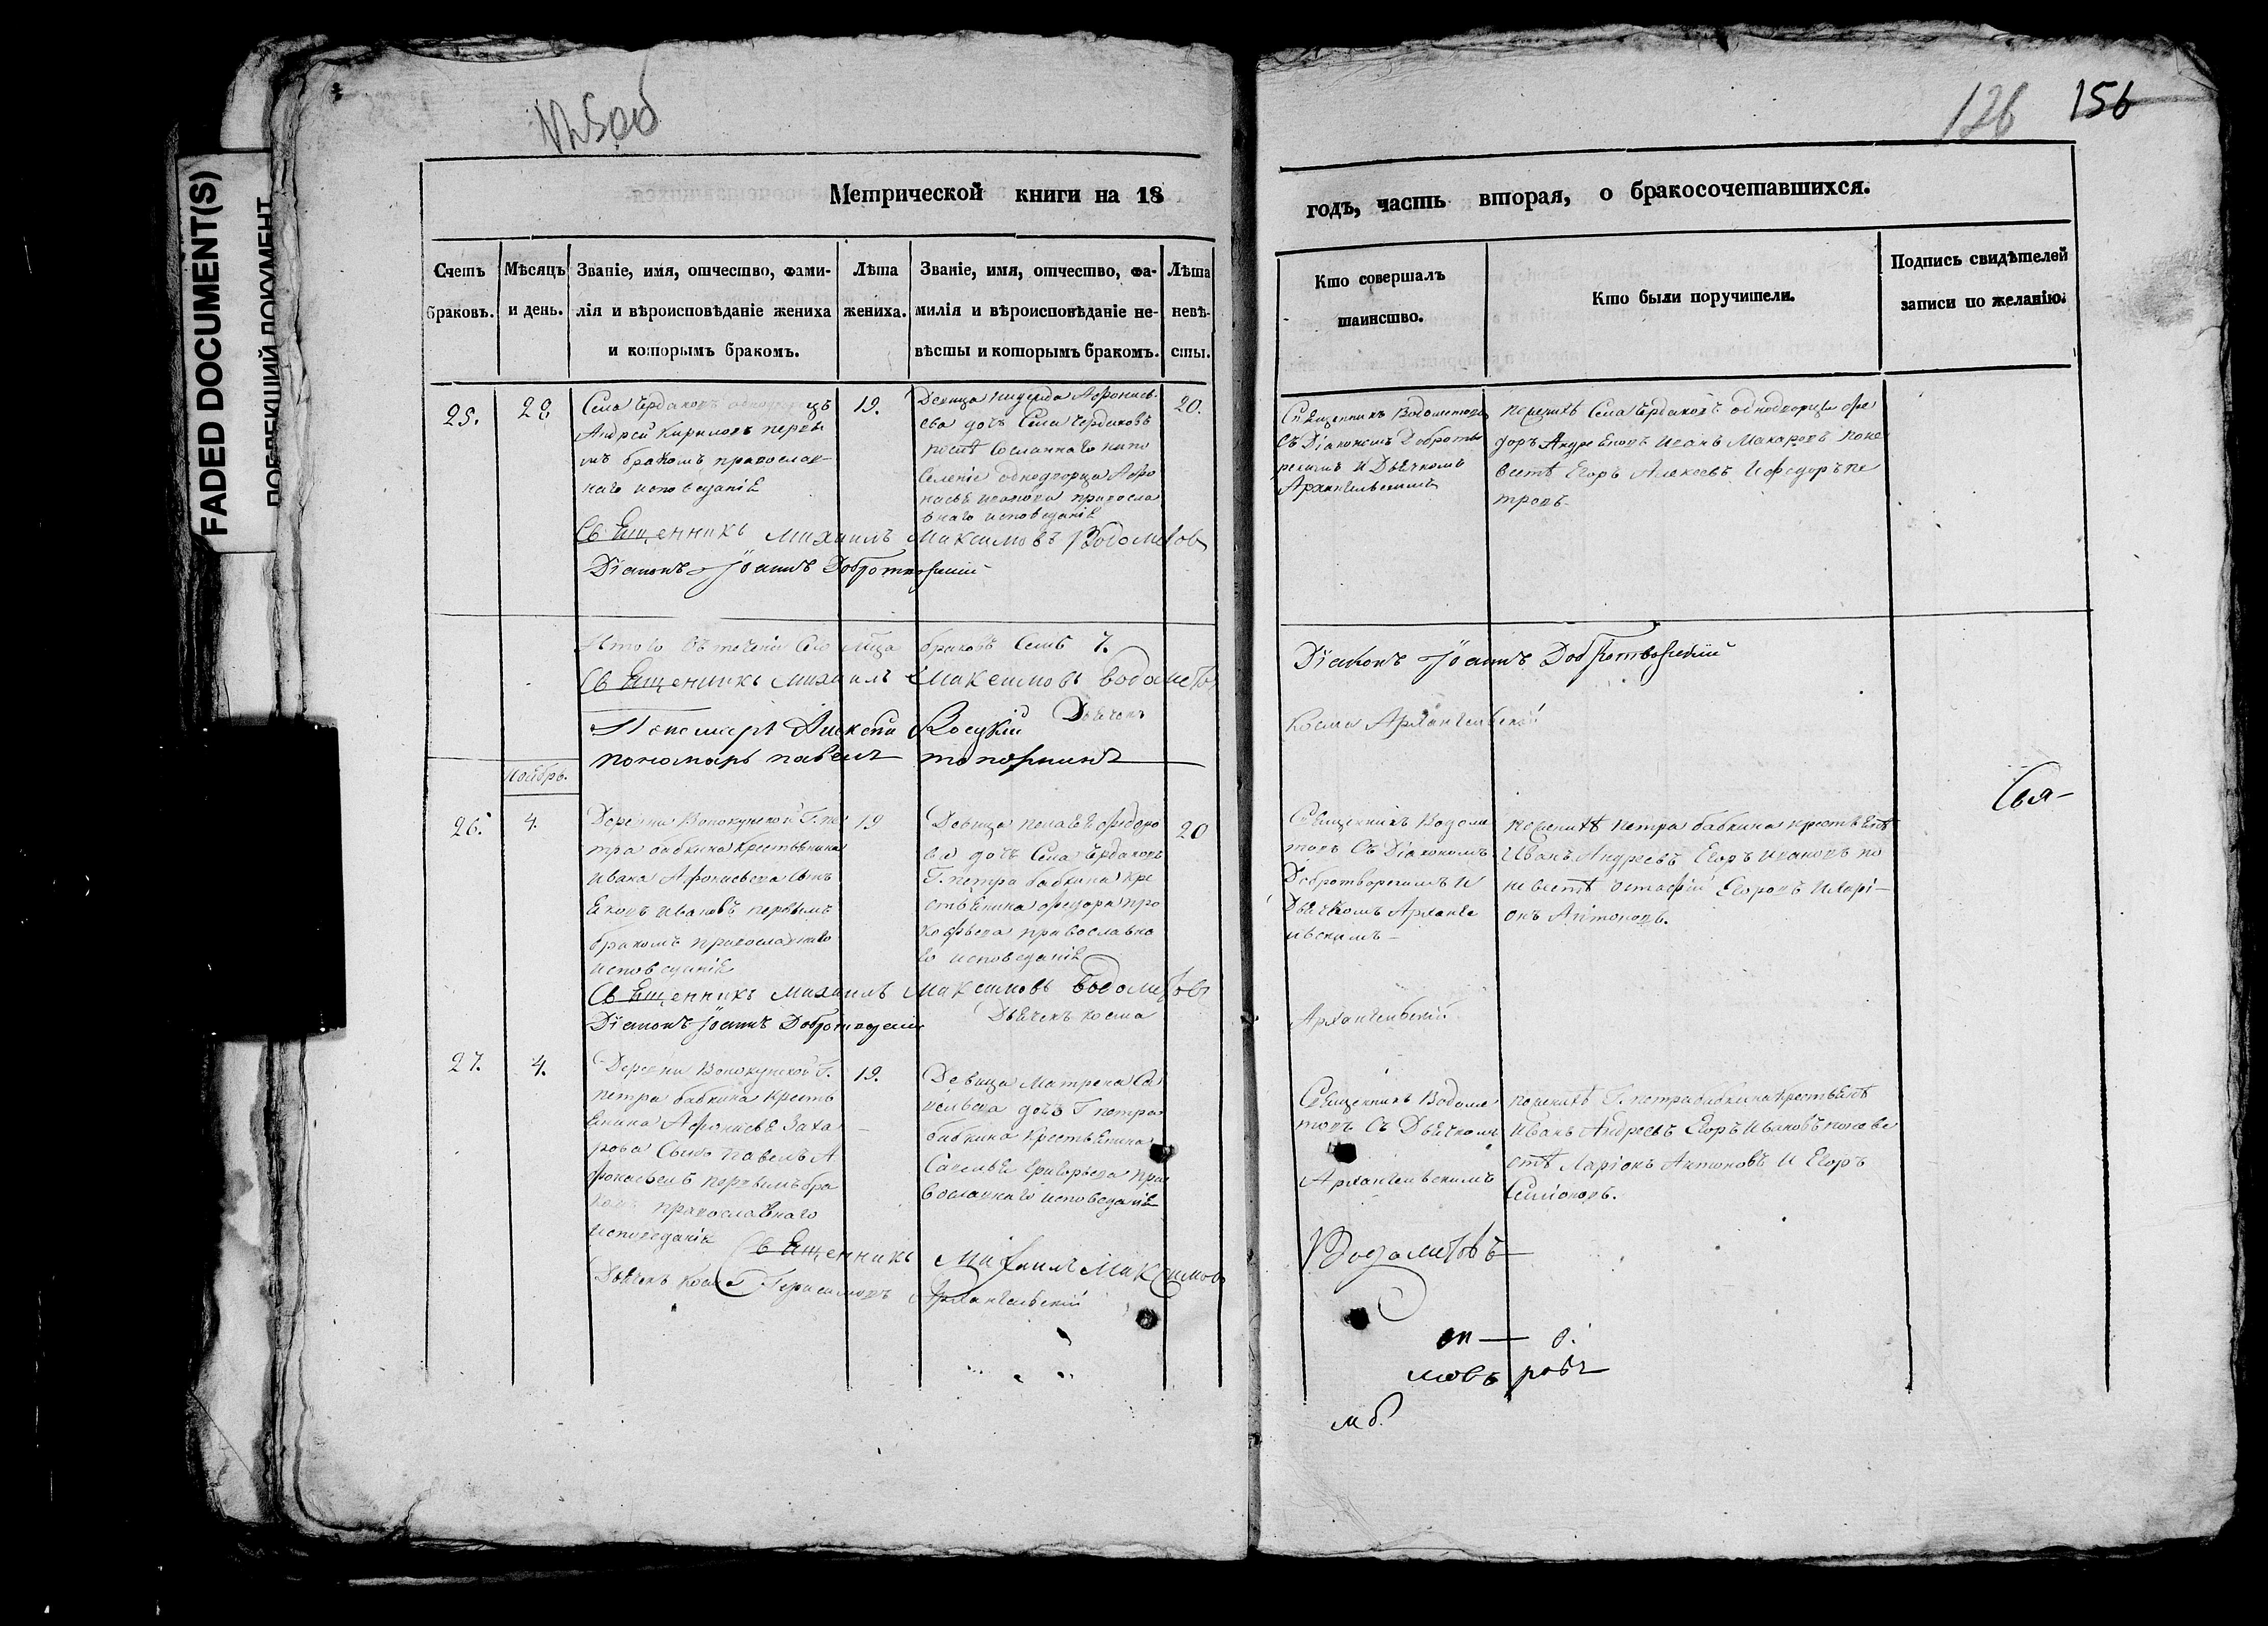 FADED DOCUMENT(S)
126 156
Метрической книги на 18
годъ, часть вторая, о бракосочетавшихся.
Счетъ
браковъ.
Мѣсяцъ
и день.
Званіе, имя, отчество, фами-
лія и вѣроисповѣданіе жениха
и которымъ бракомъ.
Лѣта
жениха.
Званіе, имя, отчество, фа-
милія и вѣроисповѣданіе не-
вѣсты и которымъ бракомъ.
Лѣта
невѣ-
сты.
Кто совершалъ
таинство.
Кто были поручители.
Подпись свидѣтелей
записи по желанію.
25.
28
Села Чердаковъ
Андрей Кириловъ первы
мъ бракомъ православ-
наго исповеданіЕ
19.
Девица Афонась
ева дочь Села Чердаковъ
Сосланнаго на по
селеніе однодворца Афо
насьЕ Иванова правосла
внаго исповеданіЕ
20.
Священникъ Водометовъ
съ Діакономъ Добротво
рскимъ и Дьячкомъ
Архангельскимъ
по женихѣ Села Чердаковъ однодворцы Фе
доръ Андреяновъ Иванъ Макаровъ по не
вестѣ Егоръ Алексеевъ и Федоръ Пе
тровъ.
СвЕщенникъ Михаилъ Максимовъ Водометовъ
Діаконъ Іоаннъ Добротворскій
Итого въ теченіи Сего м͠ца браковъ семь 7.
СвЕщенникъ Михаилъ Максимовъ Водометов
Діаконъ Іоаннъ Добротворскій
Пономарь Алексѣй Дьячекъ
Косма Архангельскій
пономарь павелъ топорнинъ
Ноябрь.
26.
4.
Деревни Г. Пе
тра бабкина КрестьЕнина
Ивана Афонасьева Сынъ
Ивановъ первымъ
бракомъ православнаго
исповеданіЕ
19
Девица ПелагеЕ Федоро
ва дочь Села Чердаковъ
Г. Петра бабкина кре
стьЕнина Федора Про
кофьева православна
го исповеданіЕ
20
СвЕщенникъ Водоме
товъ Съ Діакономъ
Добротворскимъ И
Дьячкомъ Арханге
льскимъ
по женихѣ Петра бабкина крестьЕнѣ
Иванъ Андреевъ Егоръ Ивановъ по
невестѣ Остафій Егоровъ Иларі-
онъ Антоновъ.
Свя-
СвЕщенникъ Михаилъ Максимовъ Водометовъ
Діаконъ Іоаннъ Добротворскій Дьячекъ Косма
Архангельскій
27.
4.
Деревни Г.
Петра бабкина Кресть
Енина АфонасьЕ Заха
рова Сынъ Павелъ А
фонасьевъ первымъ бра
комъ православнаго
исповеданіЕ
19.
Девица Матрена Са
вельева дочь Г Петра
бабкина КрестьЕнина
СавельЕ Григорьева пра
вославнаго исповеданіЕ
СвЕщенникъ Водоме
товъ Съ Дьячкомъ
Архангельскимъ
по женихѣ Г. Петра бабкина КрестьЕнѣ
Иванъ Андреевъ Егоръ Ивановъ по неве
стѣ Ларіонъ Антоновъ И Егоръ
Симіоновъ.
СвЕщенникъ Михаилъ Максимовъ
Водометовъ
Дьячекъ Косма Герасимовъ Архангельскій